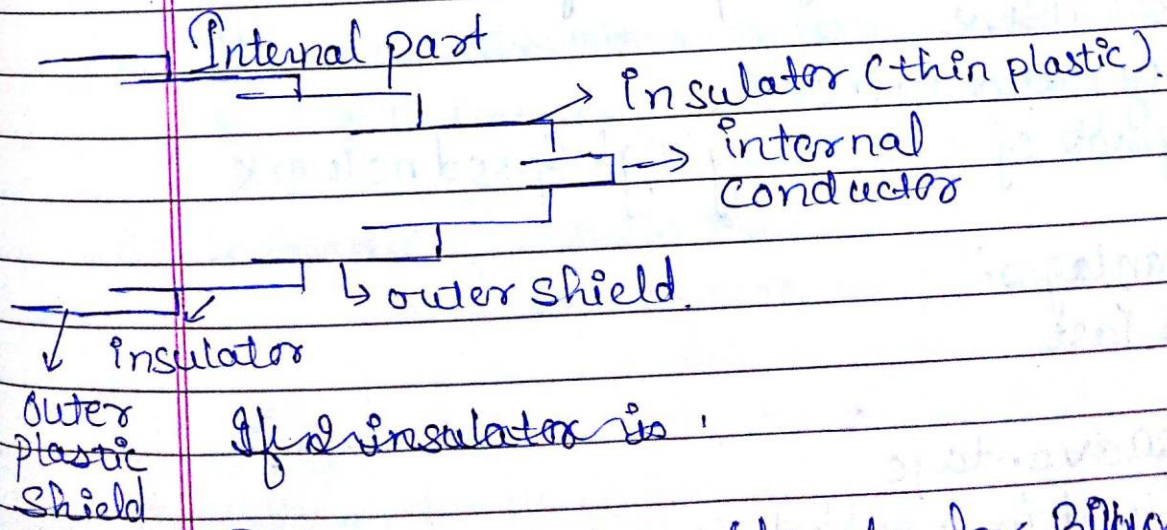 Internal part
insulator (thin plastic).
internal
conductor
outer shield.
insulator
outer
plastic
shield